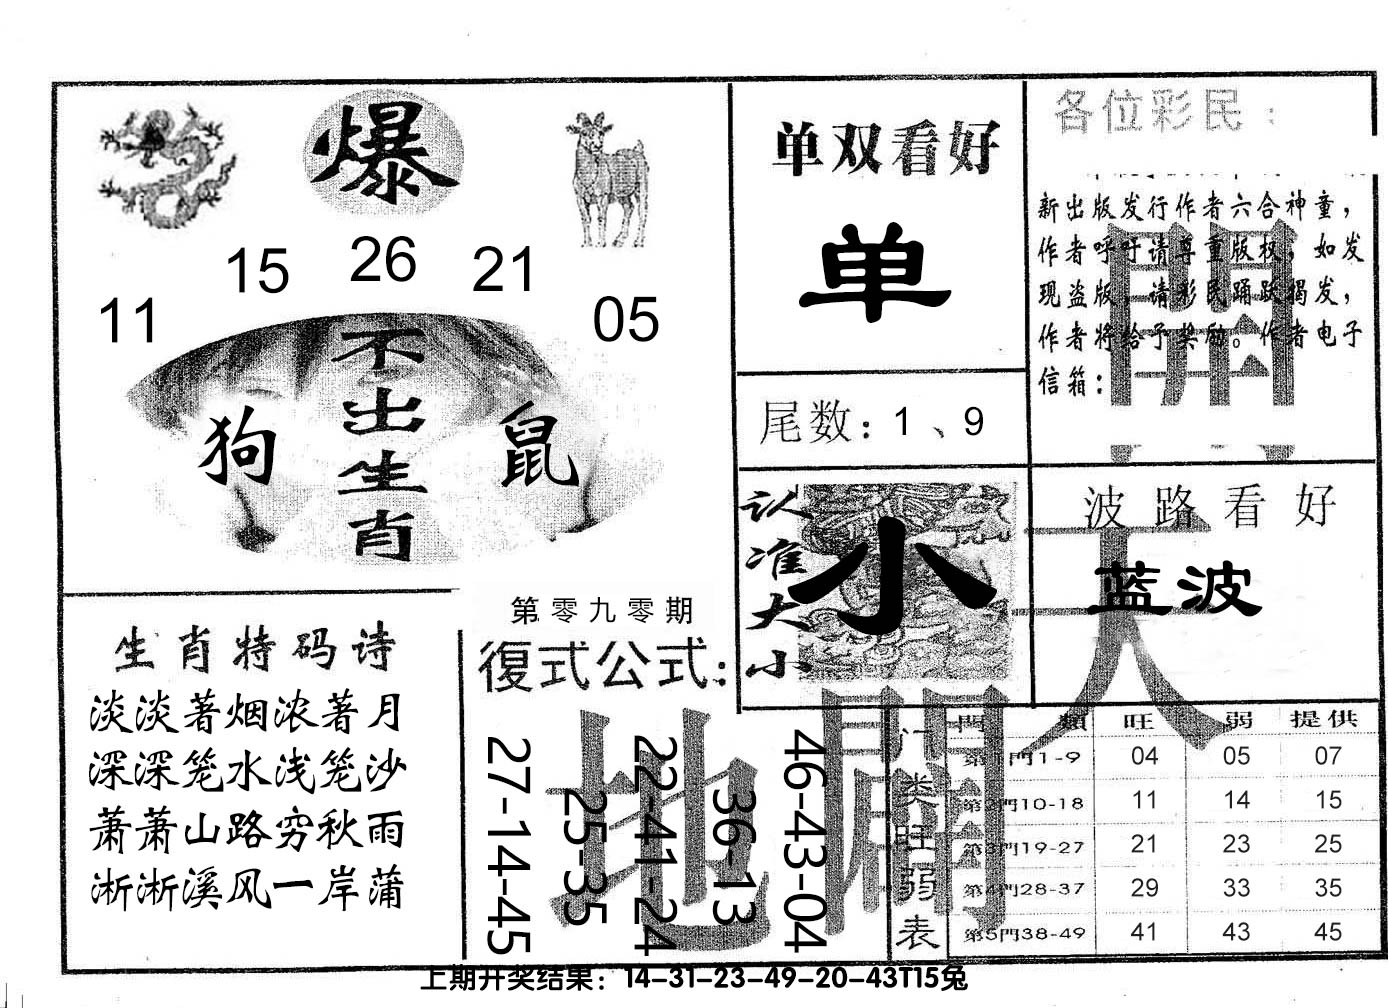 爆
15 26 21
11 05
不出生肖
狗 鼠
单双看好
单
尾数：1、9
各位彩民：
新出版发行作者六合神童，
作者呼吁请尊重版权，如发
现盗版，请彩民踊跃揭发，
作者将给予奖励。作者电子
信箱：
開
认准大小
小
波路看好
蓝波
天
生肖特码诗
淡淡著烟浓著月
深深笼水浅笼沙
萧萧山路穷秋雨
淅淅溪风一岸蒲
第零九零期
復式公式：
27-14-45
25-35
22-41-24
36-13
46-43-04
地
门类旺弱表
門類 旺 弱 提供
第1門1-9 04 05 07
第2門10-18 11 14 15
第3門19-27 21 23 25
第4門28-37 29 33 35
第5門38-49 41 43 45
上期开奖结果：14-31-23-49-20-43T15兔